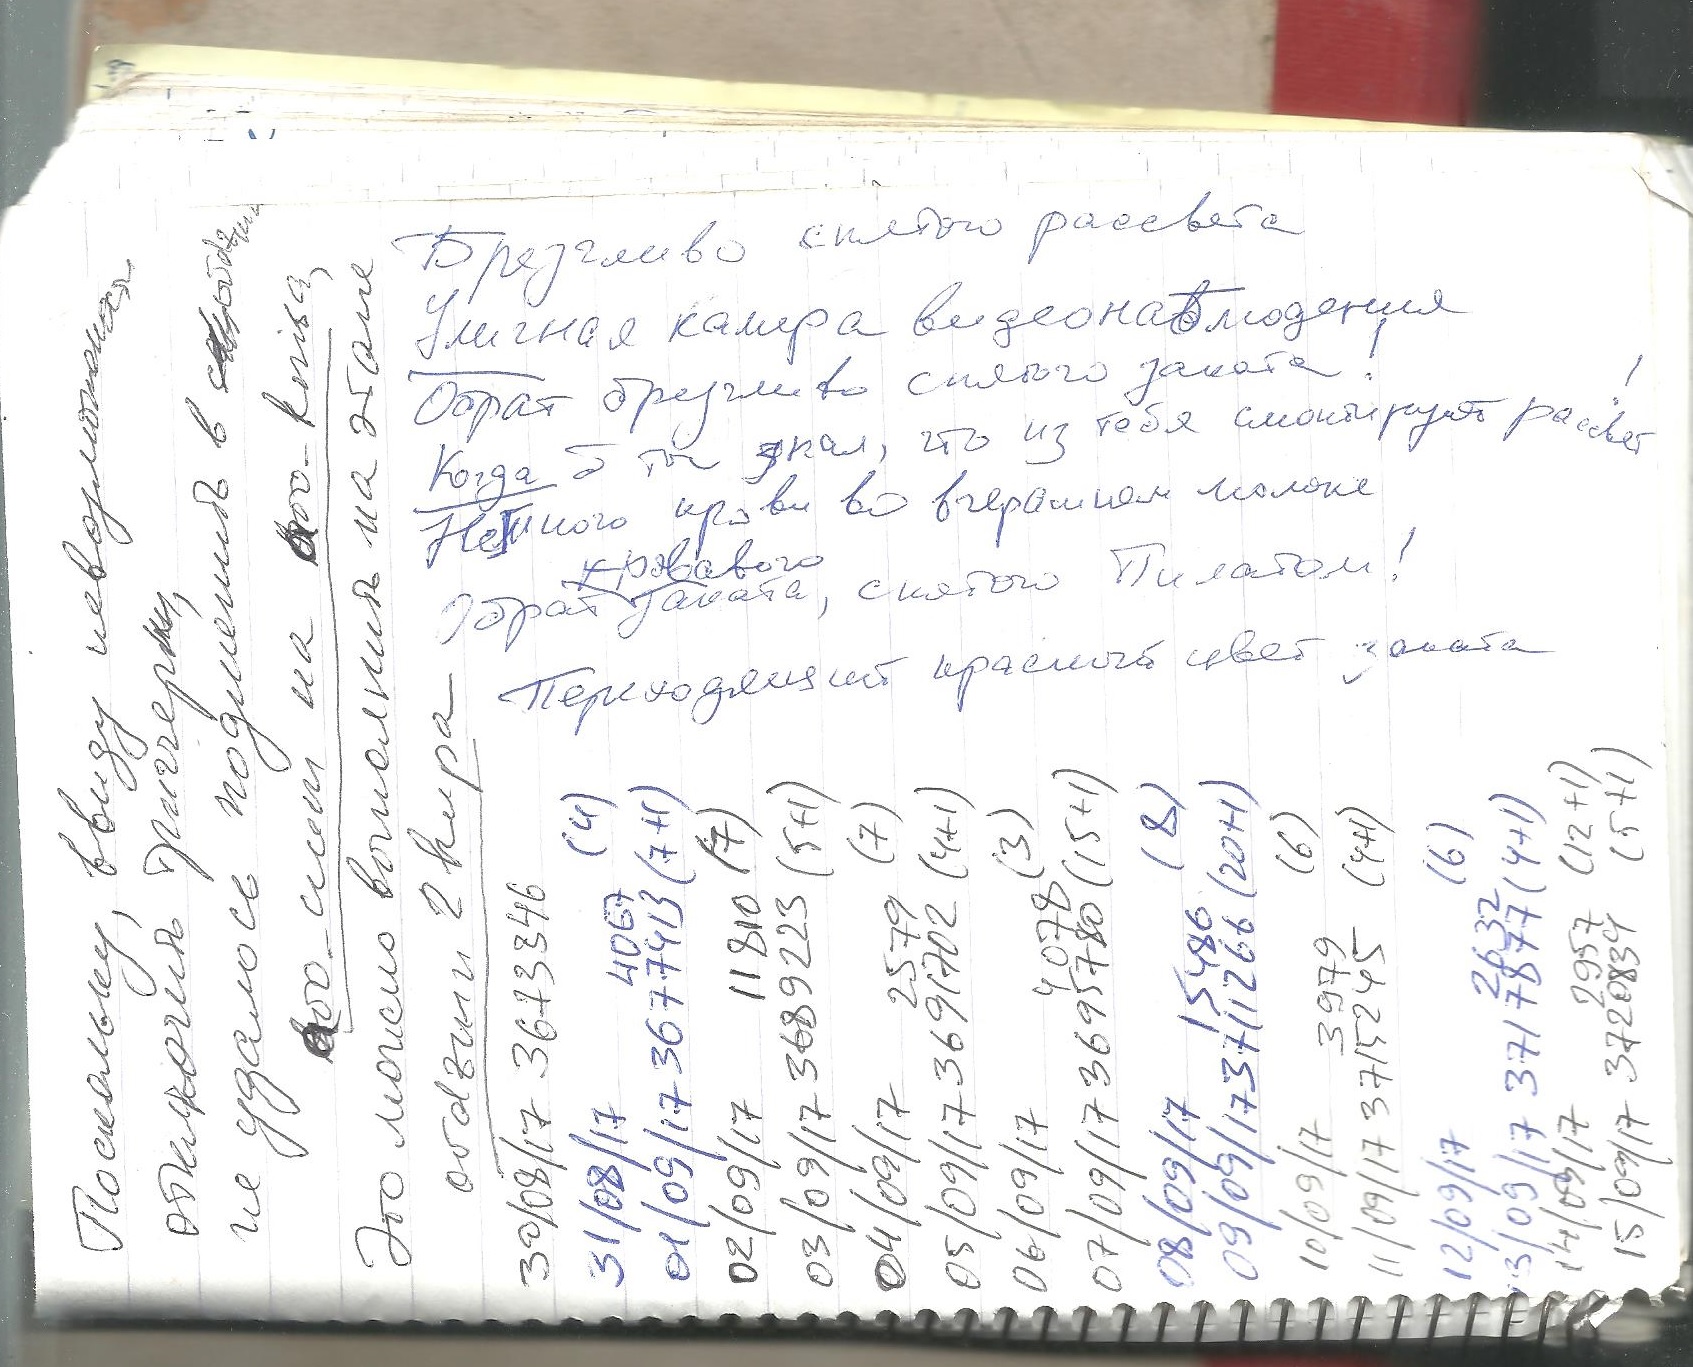 Брезгливо снятого рассвета
Уличная камера видеонаблюдения
Обрат брезгливо снятого заката!
Когда б ты знал, что из тебя смонтируют рассвет!
Немного крови во вчерашнем молоке
кровавого
Обрат заката, снятого Пилатом!
Переходящий красный цвет заката
Поскольку, ввиду невозможности
отключения
не удалось подменить в
на
Это можно выполнить на этапе
2 кира
30/08/17 3673346
31/08/17 4067 (4)
01/09/17 3677413 (7+1)
02/09/17 11810 (7)
03/09/17 3689223 (5+1)
04/09/17 2579 (7)
05/09/17 3691702 (4+1)
06/09/17 4078 (3)
07/09/17 3695780 (15+1)
08/09/17 15486 (8)
09/09/17 3711266 (20+1)
10/09/17 3979 (6)
11/09/17 3715245 (4+1)
12/09/17 2632 (6)
13/09/17 3717877 (4+1)
14/09/17 2957 (12+1)
15/09/17 3720834 (5+1)